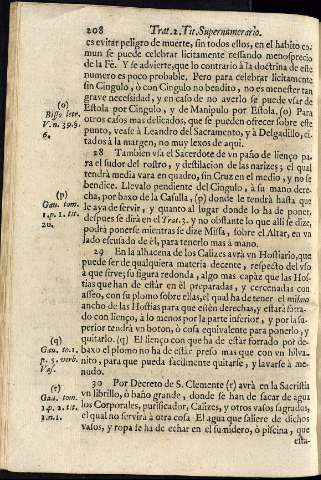 208 Trat. 2. Tit. Supernumerario.
es evitar peligro de muerte, sin todos ellos, en el habito co-
mun se puede celebrar licitamente cessando menosprecio
de la Fè. Y se advierte, que lo contrario à la doctrina de este
numero es poco probable. Pero para celebrar licitamente
sin Cingulo, ò con Cingulo no bendito, no es menester tan
grave necessidad, y en caso de no averlo se puede vsar de
(o)
Estola por Cingulo, y de Manipulo por Estola. (o) Para
otros casos mas delicados, que se pueden ofrecer sobre este
V. n. 39. §.
6.
punto, vease à Leandro del Sacramento, y à Delgadillo, ci-
tados à la margen, no muy lexos de aqui.
28 Tambien vsa el Sacerdote de vn paño de lienço pa-
ra el sudor del rostro, y destilacion de las narizes; el qual
tendrà media vara en quadro, sin Cruz en el medio, y no se
bendice. Llevalo pendiente del Cingulo, à su mano dere-
(p)
Gau. tom.
1. p. 2. tit.
20.
cha, por baxo de la Casulla, (p) donde le tendrà hasta que
le aya de servir, y quanto al lugar donde lo ha de poner,
despues se dirà en el Trat. 3. y no obstante lo que alli se dize,
podrà ponerse mientras se dize Missa, sobre el Altar, en vn
lado escusado de èl, para tenerlo mas à mano.
29 En la alhacena de los Calizes avrà vn Hostiario, que
puede ser de qualquiera materia decente, respecto del vso
à que sirve; su figura redonda, algo mas capàz que las Hos-
tias que han de estàr en el preparadas, y cercenadas con
asseo, con su plomo sobre ellas, el qual ha de tener el mismo
ancho de las Hostias para que estèn derechas, y estarà forra-
do con lienço, à lo menos por la parte inferior, y por la su-
perior tendrà vn boton, ò cosa equivalente para ponerlo, y
(q)
Gau. to. 1.
p. 5. verb.
Vas.
quitarlo. (q) El lienço con que ha de estàr forrado por de-
baxo el plomo no ha de estàr preso mas que con vn hilva-
nito, para que pueda facilmente quitarse, y lavarse à me-
nudo.
(r)
Gau. tom.
1. p. 2. tit.
1. n. 1.
30 Por Decreto de S. Clemente (r) avrà en la Sacristia
vn librillo, ò baño grande, donde se han de sacar de agua
los Corporales, purificador, Calizes, y otros vasos sagrados,
el qual no servirà à otra cosa El agua que saliere de dichos
vasos, y ropa se ha de echar en el sumidero, ò piscina, que
esta-